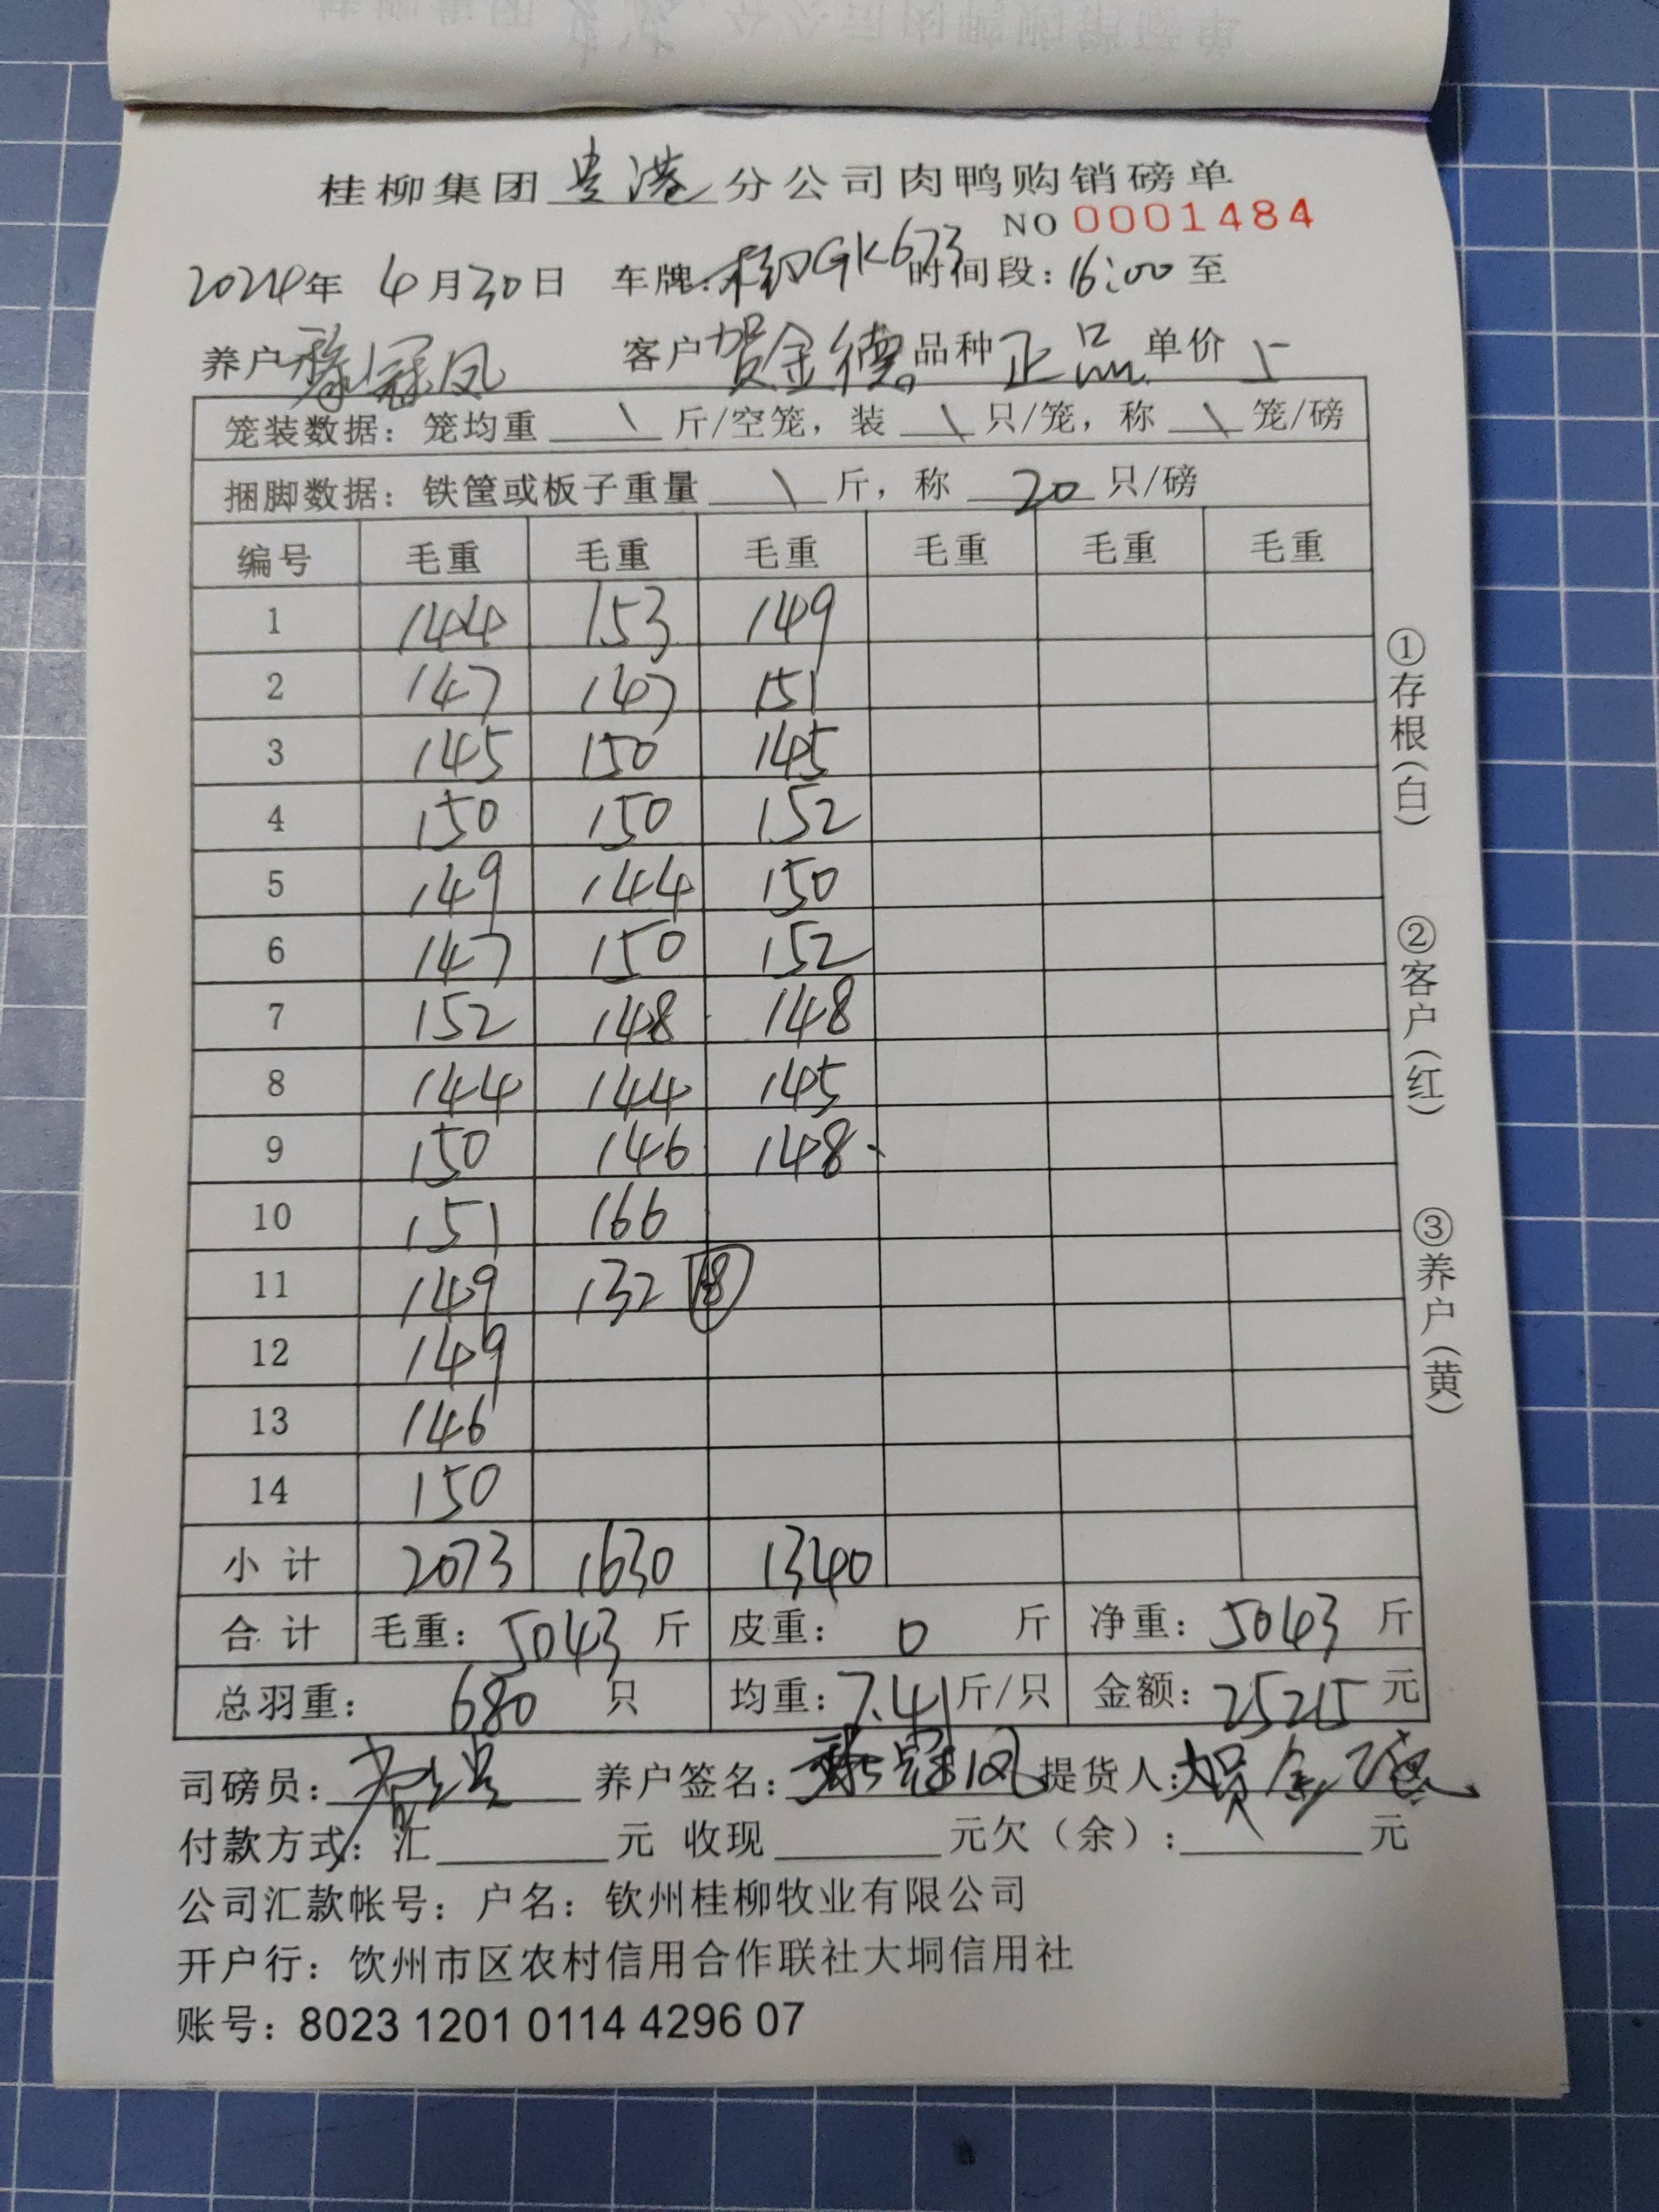 桂柳集团贵港分公司肉鸭购销磅单
NO 0001484
2024年 4月30日 车牌: GK673 时间段: 16:00 至
养户 冠凤 客户 贺金德 品种 正品 单价 5
笼装数据: 笼均重 \ 斤/空笼, 装 \ 只/笼, 称 \ 笼/磅
捆脚数据: 铁筐或板子重量 \ 斤, 称 20 只/磅
编号 毛重 毛重 毛重 毛重 毛重 毛重
1 144 153 149
2 147 147 151
3 145 150 145
4 150 150 152
5 149 144 150
6 147 150 152
7 152 148 148
8 144 144 145
9 150 146 148
10 151 166
11 149 132 18
12 149
13 146
14 150
小计 2073 1630 1340
合计 毛重: 5043 斤 皮重: 0 斤 净重: 5043 斤
总羽重: 680 只 均重: 7.41 斤/只 金额: 25215 元
司磅员: 养户签名: 冠凤 提货人: 贺金德
付款方式: 汇 元 收现 元欠(余): 元
公司汇款帐号: 户名: 钦州桂柳牧业有限公司
开户行: 饮州市区农村信用合作联社大垌信用社
账号: 8023 1201 0114 4296 07
①存根(白)
②客户(红)
③养户(黄)